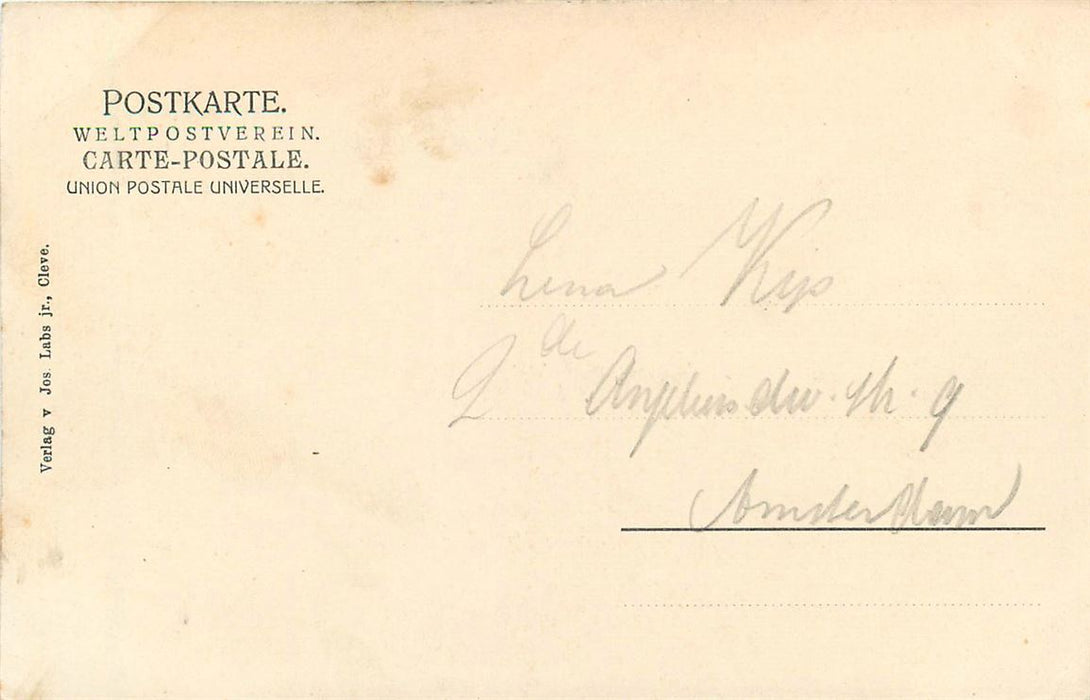 POSTKARTE.
WELTPOSTVEREIN.
CARTE-POSTALE.
UNION POSTALE UNIVERSELLE.
Verlag v Jos. Labs jr., Cleve.
Lena Kip
2 de str. 9
Amsterdam